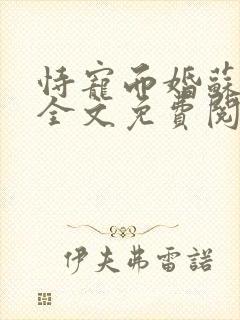 恃寵而婚蘇
全文免費閱
伊夫弗雷諾